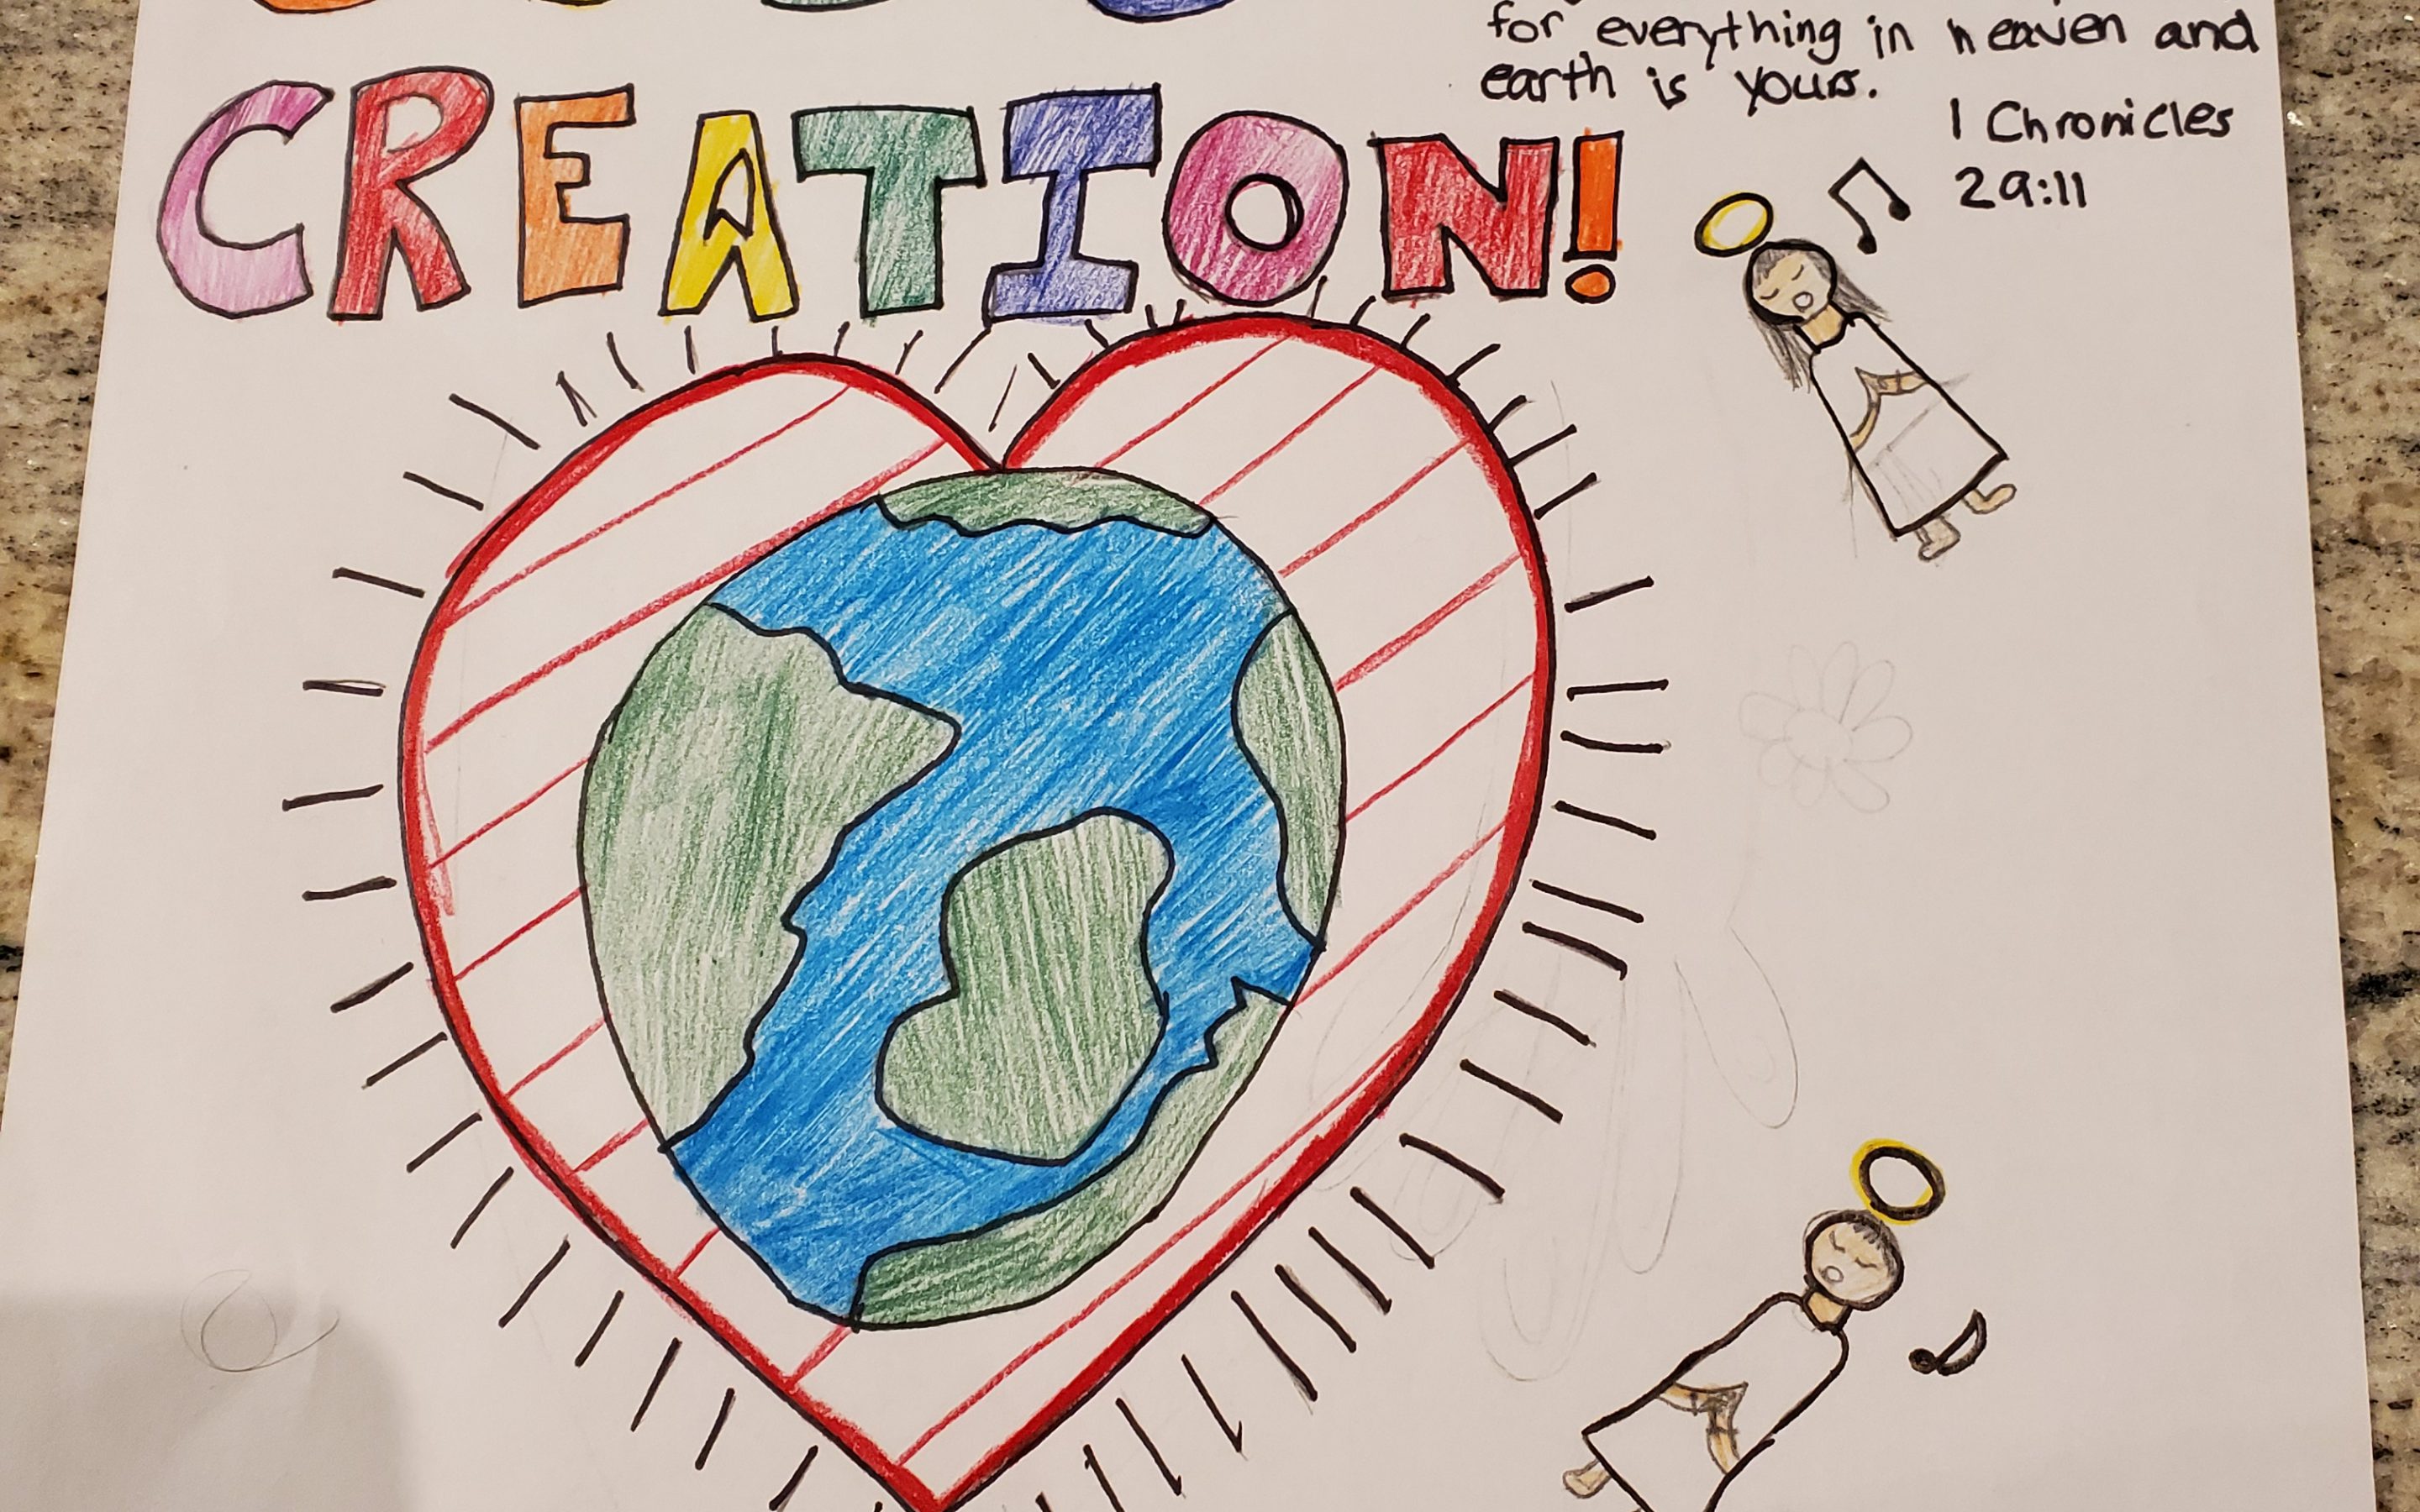 CREATION!
for everything in heaven and
earth is yours.
1 Chronicles
29:11